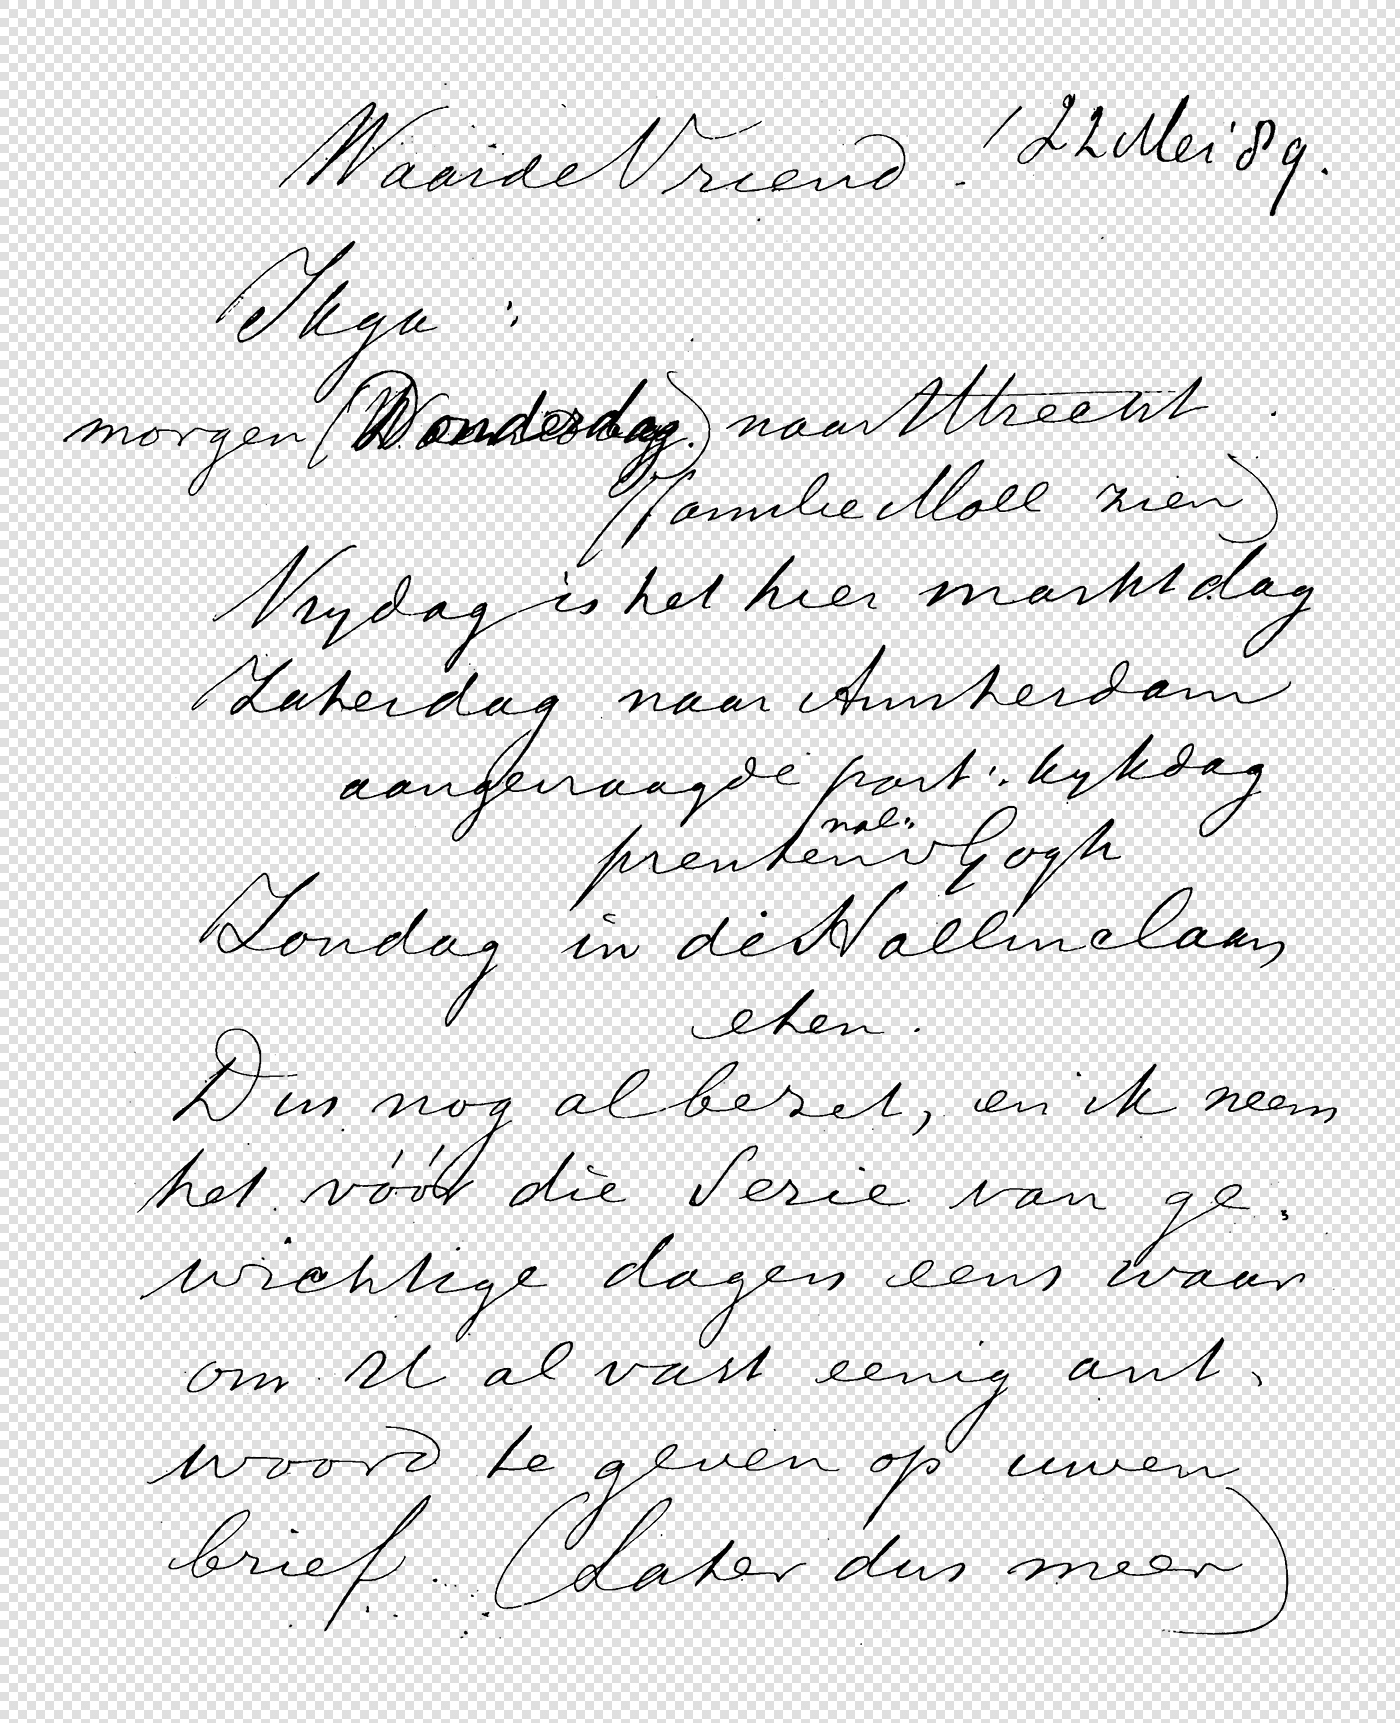 Waarde Vriend. / 22 Mei '89.
Ik ga :
morgen (Donderdag) naar Utrecht.
(familie Moll zien)
Vrydag is het hier marktdag
Zaterdag naar Amsterdam
aangevraagde part: kykdag
nal:
prenten v Gogh
Zondag in de laan
eten.
Dus nog al bezet, en ik neem
het vóór die Serie van ge-
wichtige dagen eens waar
om U al vast eenig ant-
woord te geven op uwen
brief. (Later dus meer)